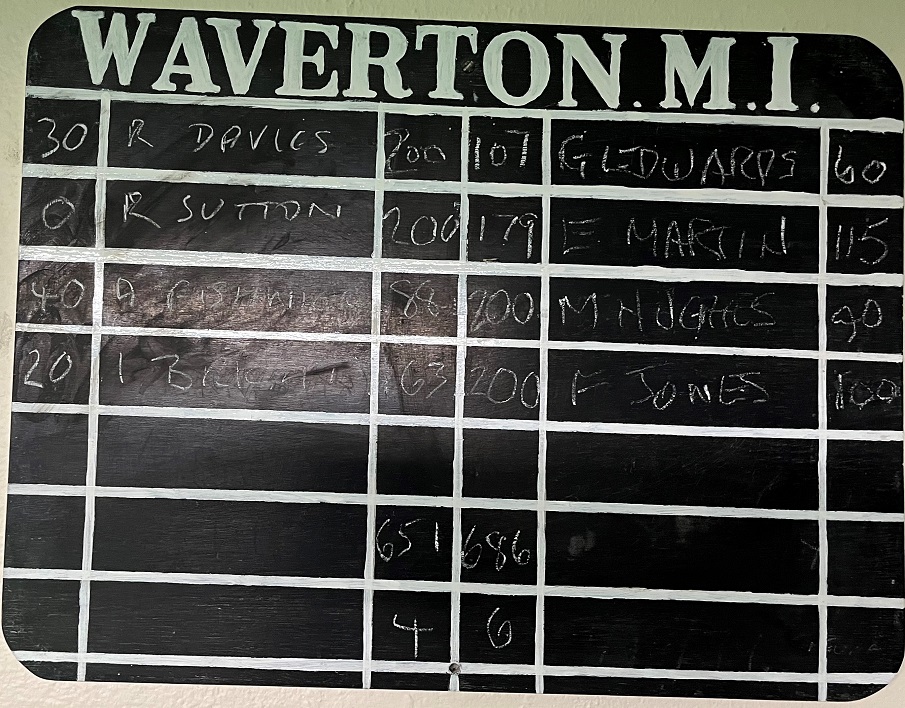 WAVERTON. M.I.
30 R DAVIES 200 107 G EDWARDS 60
0 R SUTTON 200 179 E MARTIN 115
40 A 88 200 M HUGHES 90
20 I 163 200 F JONES 100
651 686
4 6